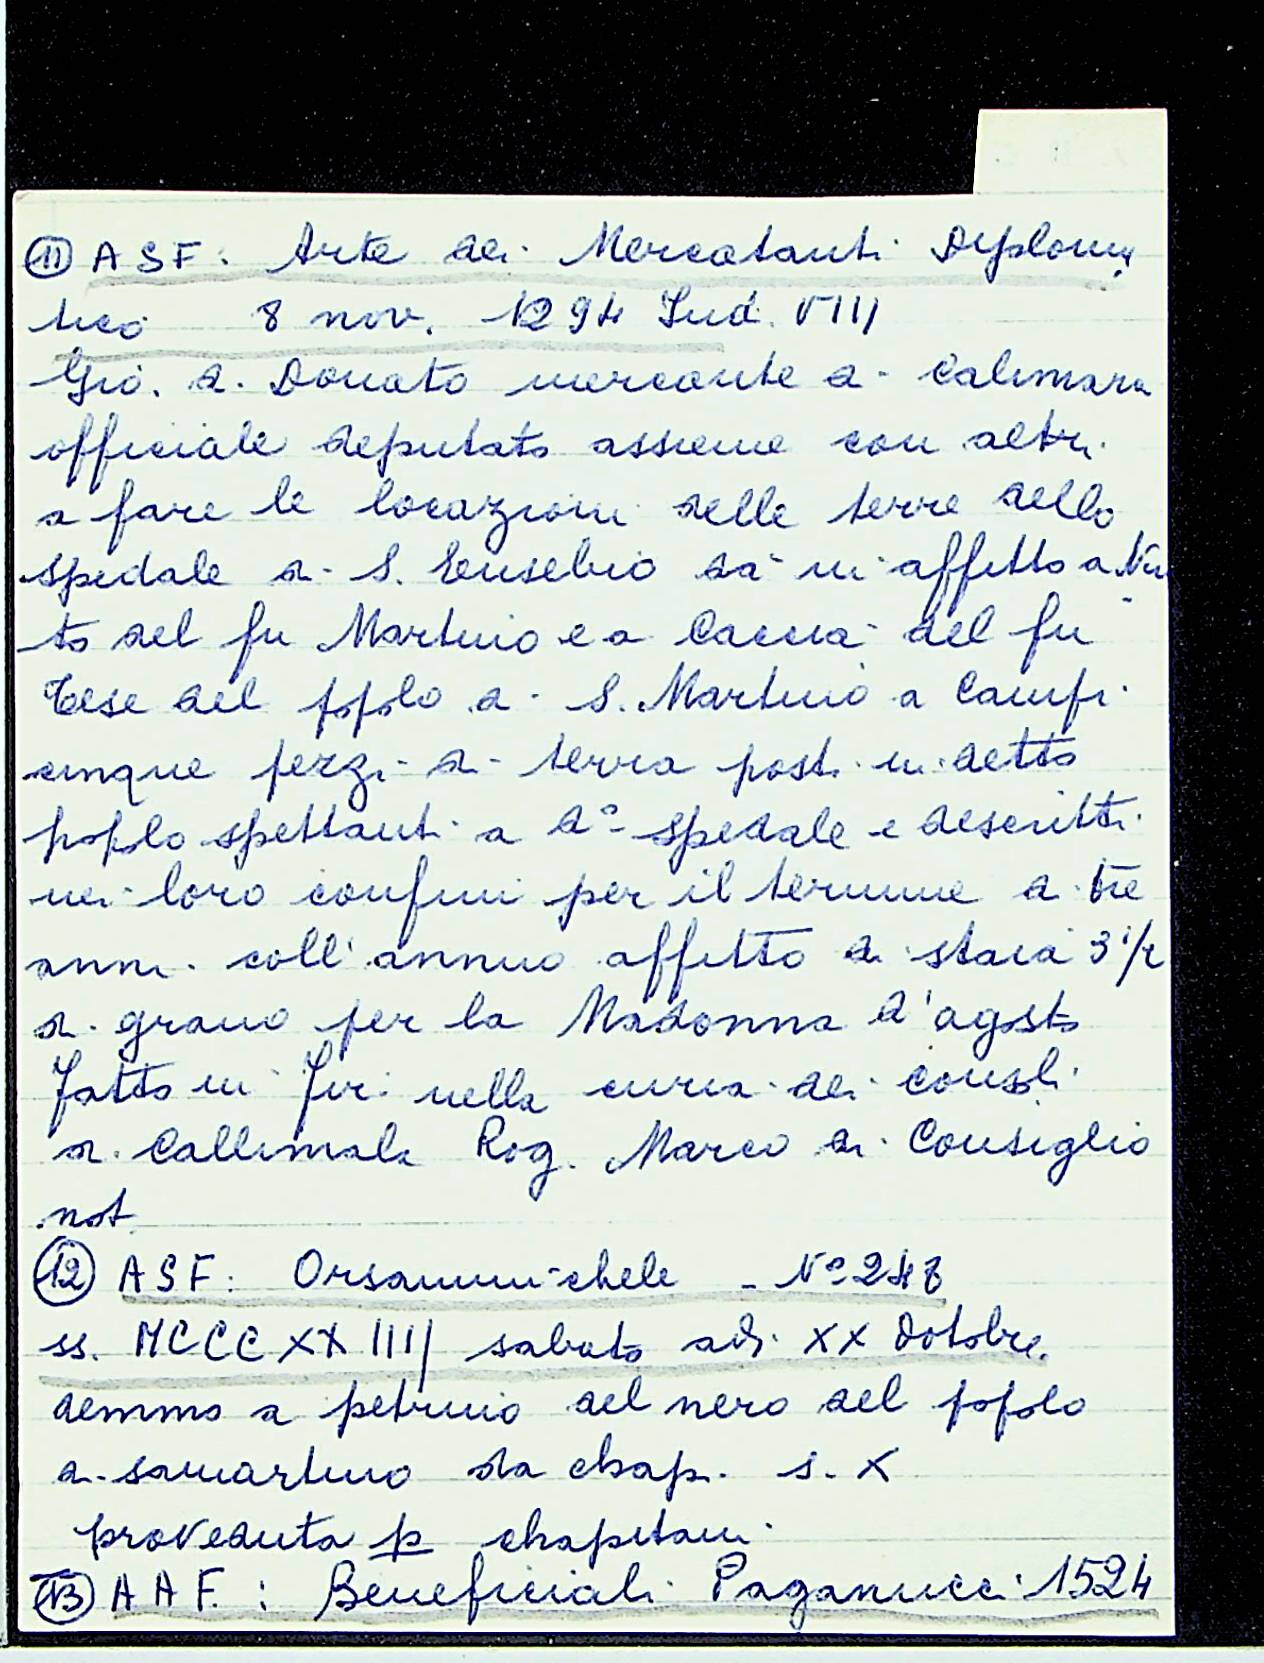 11 ASF: Arte dei Mercatanti Diploma
tico 8 nov. 1294 Ind. VIII
Gio. di Donato mercante di Calimara
officiale deputato assieme con altri
a fare le locazioni delle terre dello
spedale di S. Eusebio dà in affitto a
to del fu Martino e a Caccia del fu
Cese del popolo di S. Martino a Campi
cinque pezzi di terra posti in detto
popolo spettanti a do spedale e descritti
nei loro confini per il termine di tre
anni coll'annuo affitto di staia 3 1/2
di grano per la Madonna d'agosto
Fatto in Fir. nella curia dei consoli
di Callimala Rog. Marco di Consiglio
not
12 ASF: Orsanmichele - No 248
ss. MCCCXXIIII sabato adì XX Ootobre.
demmo a petruio del nero del popolo
di samartino da chap. s. X
proveduta p chapitani
13 AAF.: Beneficiali Paganucci 1524